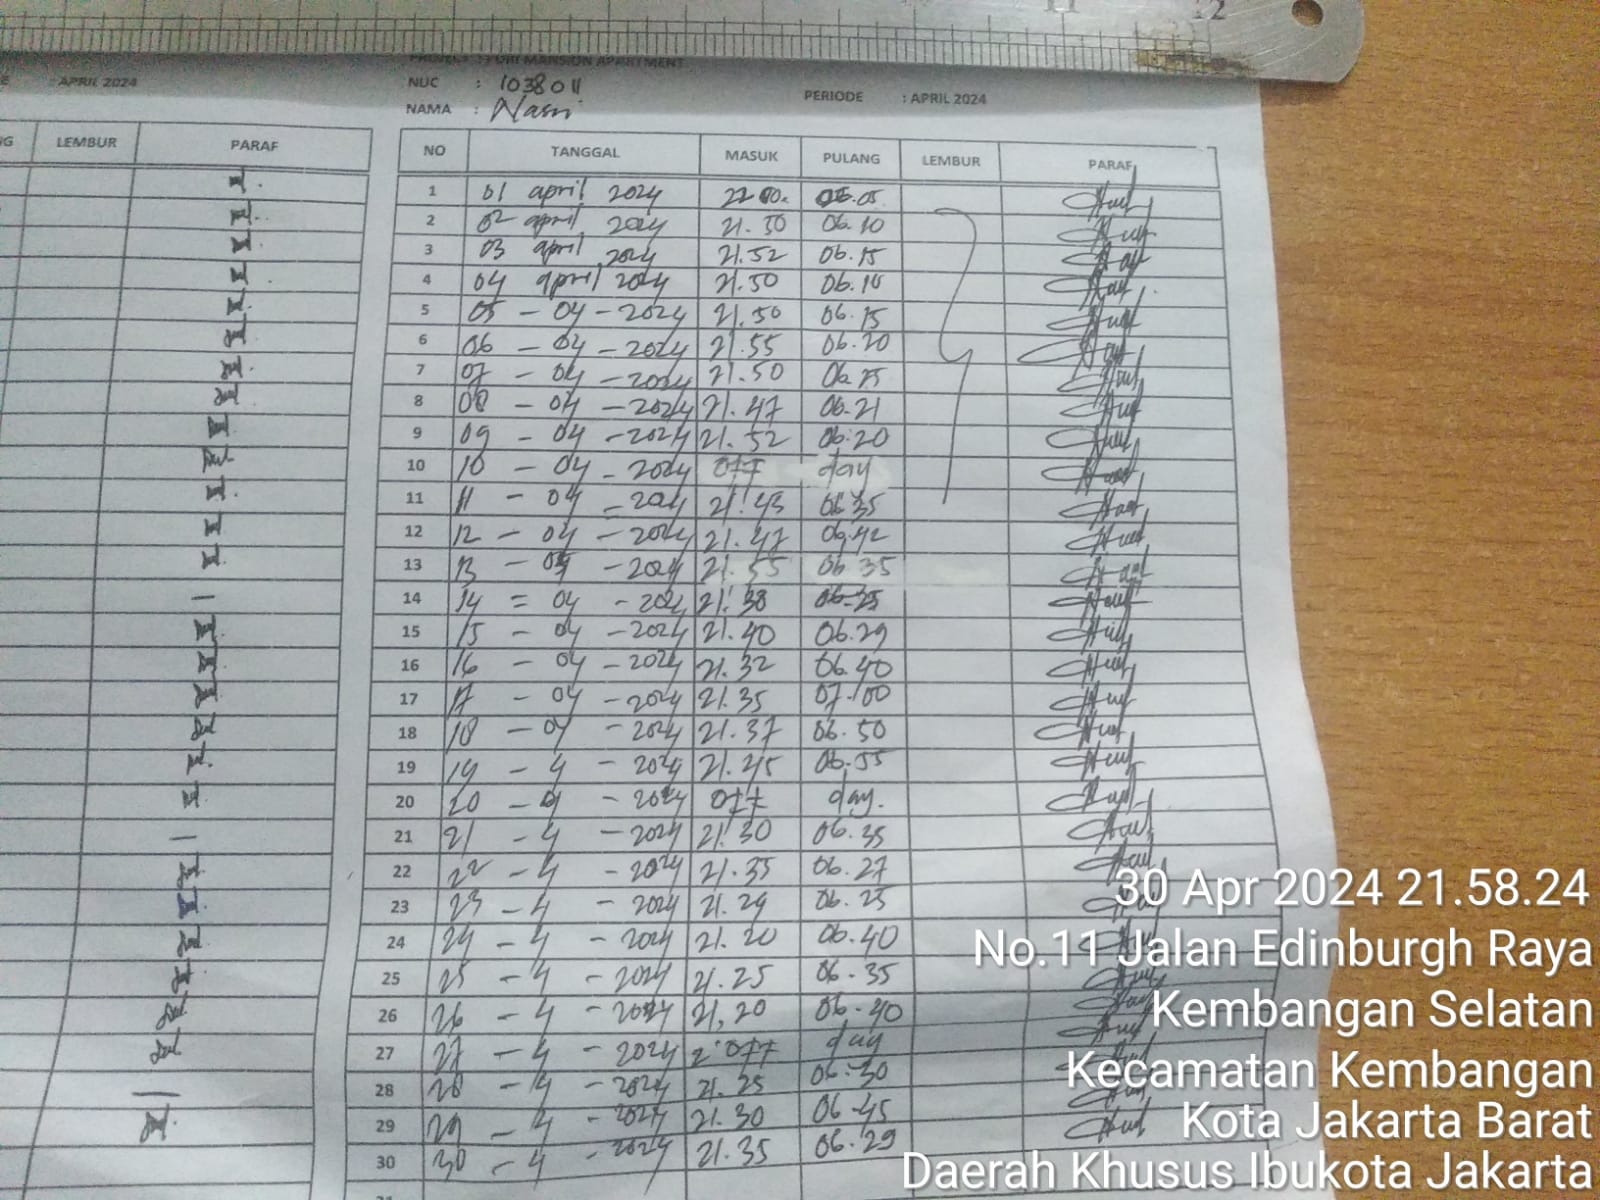 11 12
: APRIL 2024
PURI MANSION APARTMENT
NUC : 1038011
NAMA : Nasri
PERIODE : APRIL 2024
LEMBUR PARAF
NO TANGGAL MASUK PULANG LEMBUR PARAF
1 01 april 2024 22 00. 06.05
2 02 april 2024 21.50 06.10
3 03 april 2024 21.52 06.15
4 04 april 2024 21.50 06.10
5 05 - 04 - 2024 21.50 06.15
6 06 - 04 - 2024 21.55 06.20
7 07 - 04 - 2024 21.50 06.25
8 08 - 04 - 2024 21.47 06.21
9 09 - 04 - 2024 21.52 06.20
10 10 - 04 - 2024 off day
11 11 - 04 - 2024 21.45 06.35
12 12 - 04 - 2024 21.47 06.42
13 13 - 04 - 2024 21.55 06 35
14 14 = 04 - 2024 21.38 06.25
15 15 - 04 - 2024 21.40 06.29
16 16 - 04 - 2024 21.32 06.40
17 17 - 04 - 2024 21.35 07.00
18 18 - 04 - 2024 21.37 06.50
19 19 - 4 - 2024 21.45 06.55
20 20 - 4 - 2024 off day.
21 21 - 4 - 2024 21.30 06.35
22 22 - 4 - 2024 21.35 06.27
23 23 - 4 - 2024 21.29 06.25
24 24 - 4 - 2024 21.20 06.40
25 25 - 4 - 2024 21.25 06-35
26 26 - 4 - 2024 21,20 06-40
27 27 - 4 - 2024 off day
28 28 - 4 - 2024 21.25 06-30
29 29 - 4 - 2024 21.30 06-45
30 30 - 4 - 2024 21.35 06.29
30 Apr 2024 21.58.24
No.11 Jalan Edinburgh Raya
Kembangan Selatan
Kecamatan Kembangan
Kota Jakarta Barat
Daerah Khusus Ibukota Jakarta